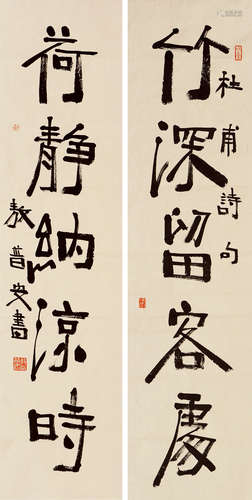 竹深留客處
杜甫詩句
荷靜納涼時
敖普安書